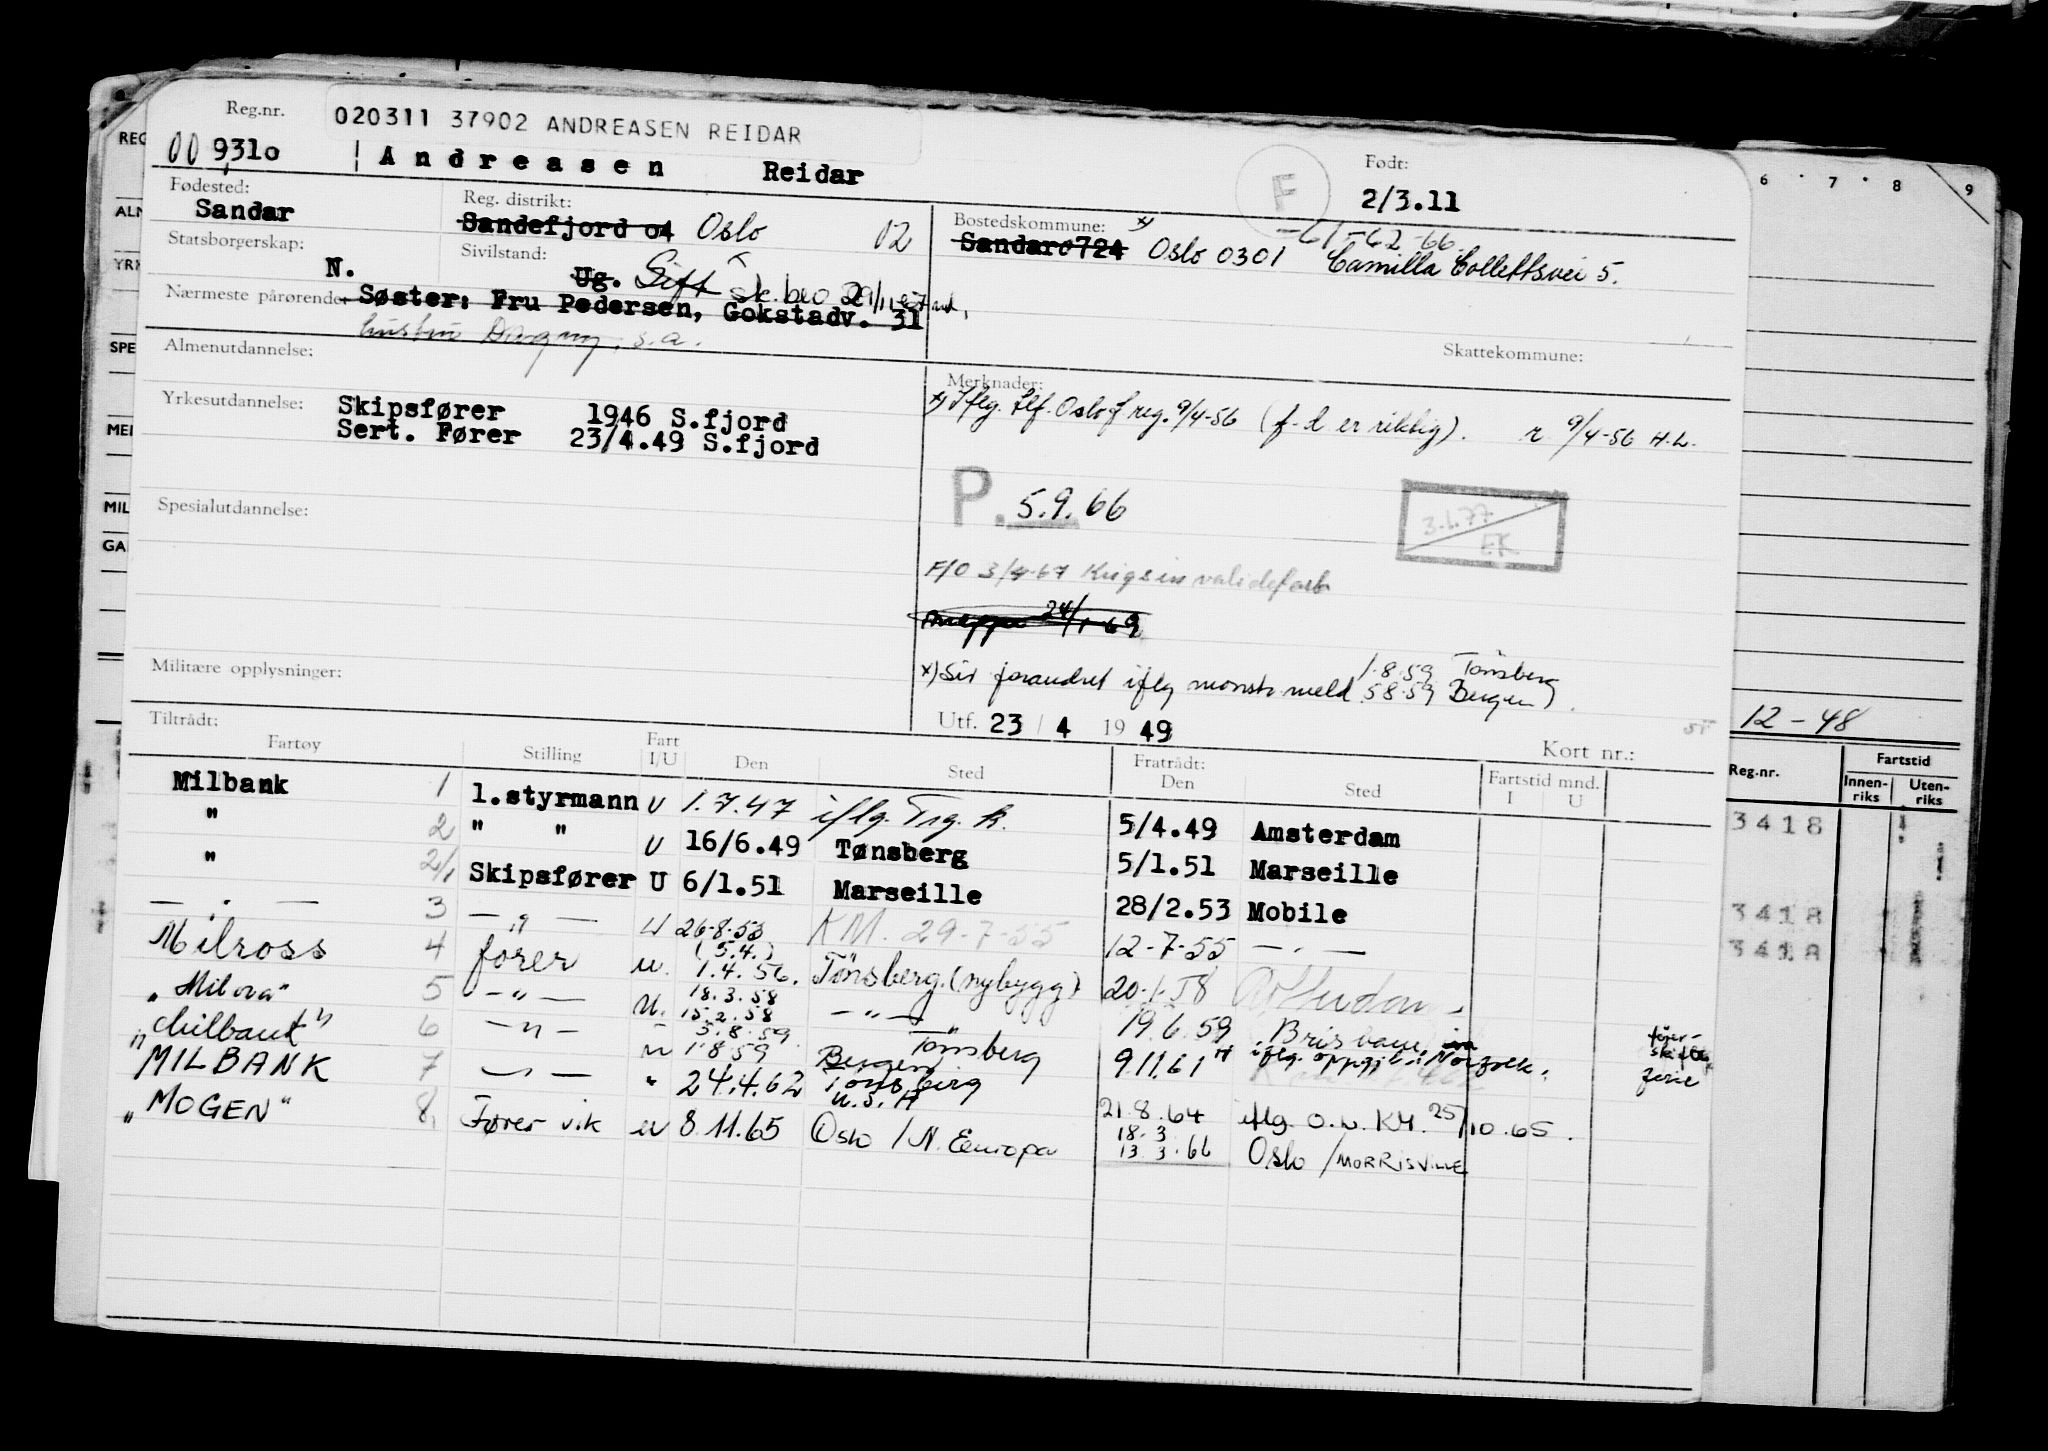 Reg.nr. 020311 37902 ANDREASEN REIDAR
00 9310 Andreasen Reidar
Født: 2/3.11
F
Fødested: Sandar
Reg. distrikt: Sandefjord 04 Oslo 02
Bostedskommune: x) Sandar 0724 Oslo 0301 Camilla Collettsvei 5.
-61-62-66
Statsborgerskap: N.
Sivilstand: Ug. Gift
Nærmeste pårørende: Søster: Fru Pedersen, Gokstadv. 31
hustru Dagny, s.a.
Skattekommune:
Almenutdannelse:
Yrkesutdannelse: Skipsfører 1946 S.fjord
Sert. Fører 23/4.49 S.fjord
Merknader:
x) Iflg. tlf. Oslo f reg. 9/4-56 (f.d er riktig). r 9/4-56 H.L.
P. 5.9.66
3.1.77
EK
F/O 3/4-67 Krigsinvalidesak
Mappe 24/1-69
Spesialutdannelse:
Militære opplysninger:
x) Siv forandret iflg mønstr meld. 1.8.59 Tønsberg
5.8.59 Bergen).
Utf. 23 / 4 19 49
Kort nr.:
Tiltrådt:
Fartøy Stilling Fart I/U Den Sted Fratrådt: Den Sted Fartstid mnd. I U
Milbank 1 1.styrmann U 1.7.47 iflg. Trg. k. 5/4.49 Amsterdam
" 2 " " U 16/6.49 Tønsberg 5/1.51 Marseille
" 2/1 Skipsfører U 6/1.51 Marseille 28/2.53 Mobile
— " — 3 — " — U 26-8-53 KM. 29-7-55 12-7-55 — " —
Milross 4 fører u. (5.4.) 1.4.56. Tønsberg (nybygg) 20.1.58 Rotterdam
"Milova" 5 — " — u. 18.3.58 15.2.58 — " — 19.6.59 Brisbane
"Milbank" 6 — " — " 5.8.59 1.8.59 Tønsberg Bergen 9.11.61 iflg. oppgitt i Norfolk.
MILBANK 7 — " — " 24.4.62 Tønsberg U.S.A 21.8.64 iflg. o.b. KM. 25/10.65.
"MOGEN" 8 Fører vik u 8.11.65 Oslo / N. Europa 18.3. 13.3.66 Oslo / MORRISVILLE
fører-
ferie
6 7 8 9
12-48
Reg.nr. Fartstid
Innen-riks Uten-riks
3418
3418
3418
REG
ALM
YRK
SPE
MER
MIL
GA